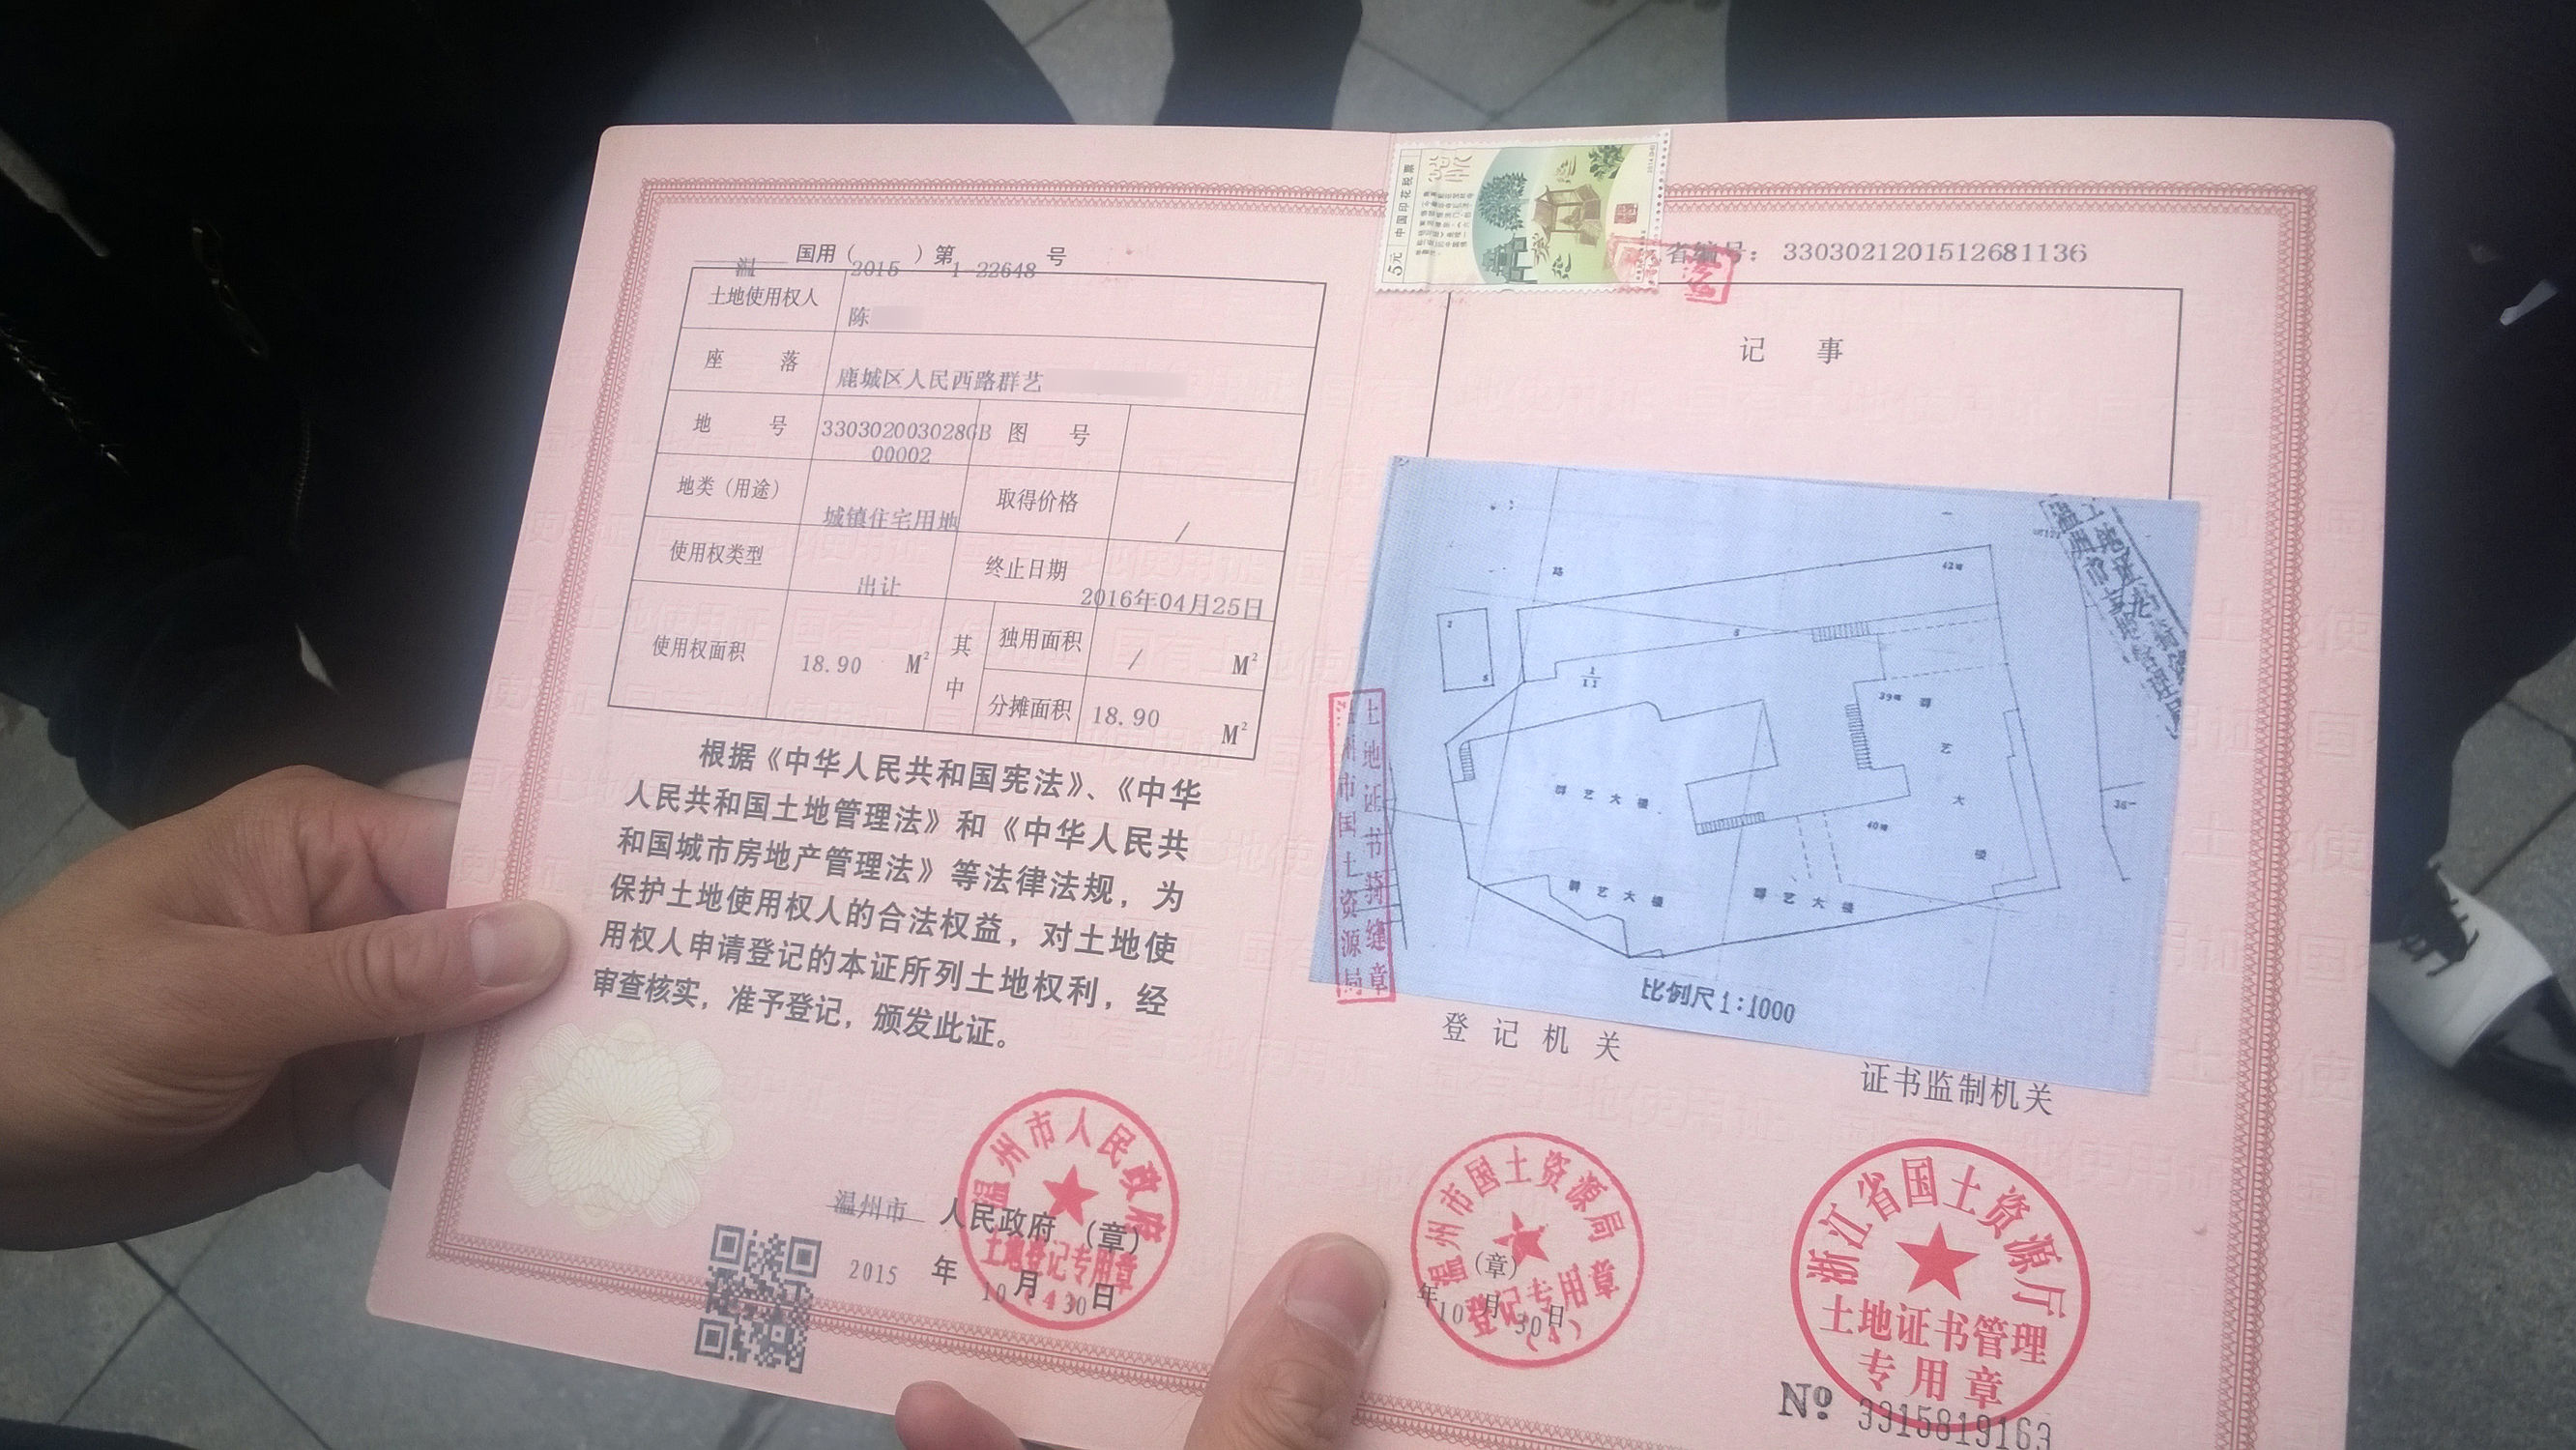 温 国用（2015）第1-22648号
土地使用权人 陈
座落 鹿城区人民西路群艺
地号 330302003028GB00002 图号
地类（用途） 城镇住宅用地 取得价格 /
使用权类型 出让 终止日期 2016年04月25日
使用权面积 18.90 M² 其中 独用面积 / M²
分摊面积 18.90 M²
根据《中华人民共和国宪法》、《中华
人民共和国土地管理法》和《中华人民共
和国城市房地产管理法》等法律法规，为
保护土地使用权人的合法权益，对土地使
用权人申请登记的本证所列土地权利，经
审查核实，准予登记，颁发此证。
温州市 人民政府（章）
2015年10月30日
温州市人民政府
土地登记专用章
(4)
中国印花税票
5元
省编号：3303021201512681136
记事
路
42
1/11
39
群艺大楼
群艺大楼
40
36
群艺大楼
群艺大楼
比例尺1:1000
土地证书骑缝章
温州市国土资源局
登记机关
证书监制机关
温州市国土资源局
登记专用章
(4)
（章）
年10月30日
浙江省国土资源厅
土地证书管理
专用章
Nº 3315819163